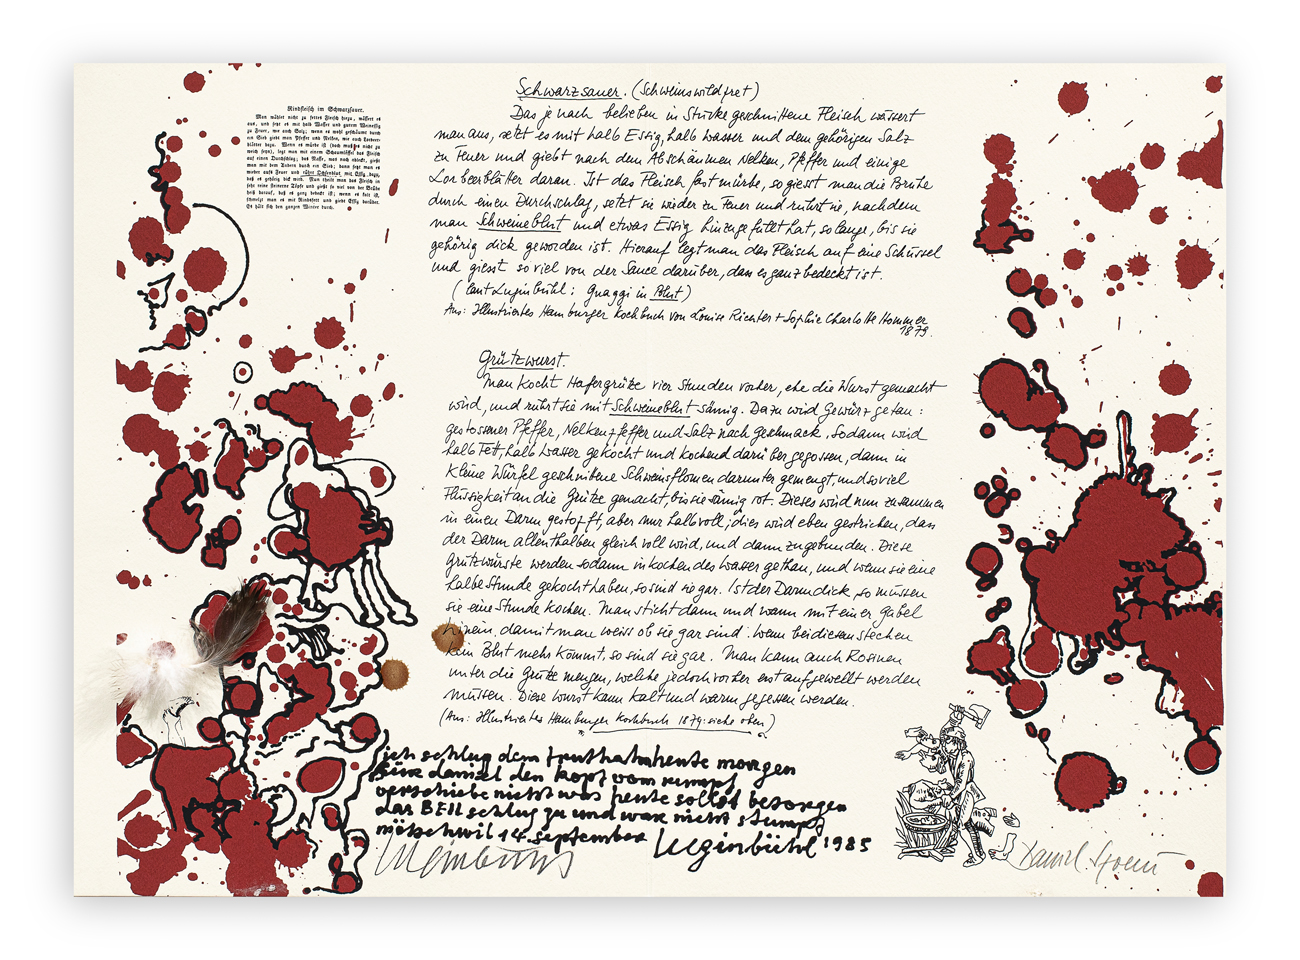 Rindfleisch im Schwarzsauer.
Man wählet nicht zu fettes Fleisch hierzu, wässert es
aus, und setzt es mit halb Wasser und gutem Weinessig
zu Feuer, wie auch Salz; wenn es wohl geschäumt durch
ein Sieb giebt man Pfeffer und Nelken, wie auch Lorbeer-
blätter dazu. Wenn es mürbe ist (doch muß es nicht zu
weich sein), legt man mit einem Schaumlöffel das Fleisch
auf einen Durchschlag; das Nasse, was noch abläuft, gießt
man mit dem Andern durch ein Sieb; dann setzt man es
wieder aufs Feuer und rührt Ochsenblut mit Essig dazu,
daß es gehörig dick wird. Nun thut man das Fleisch in
sehr reine steinerne Töpfe und gießt so viel von der Brühe
heiß darauf, daß es ganz bedeckt ist; wenn es kalt ist,
schmelzt man es mit Rindsfett und giebt Essig darüber.
Es hält sich den ganzen Winter durch.
Schwarzsauer. (Schweinswildpret)
Das je nach belieben in Stücke geschnittene Fleisch wässert
man aus, setzt es mit halb Essig, halb wasser und dem gehörigen Salz
zu Feuer und giebt nach dem Abschäumen Nelken, Pfeffer und einige
Lorbeerblätter daran. Ist das Fleisch fast mürbe, so giesst man die Brühe
durch einen Durchschlag, setzt sie wieder zu Feuer und rührt sie, nachdem
man Schweineblut und etwas Essig hinzugefüllt hat, so lange, bis sie
gehörig dick geworden ist. Hierauf legt man das Fleisch auf eine Schüssel
und giesst so viel von der Sauce darüber, dass es ganz bedeckt ist.
(laut Luginbühl: Gnaggi in Blut)
Aus: Illustriertes Hamburger Kochbuch von Louise Richter + Sophie Charlotte Hommer
1879.
Grützwurst.
Man kocht Hafergrütze vier Stunden vorher, ehe die Wurst gemacht
wird, und rührt sie mit Schweineblut sämig. Dazu wird Gewürz getan:
gestossener Pfeffer, Nelkenpfeffer und Salz nach Geschmack, sodann wird
halb Fett, halb wasser gekocht und kochend darüber gegossen, dann in
kleine Würfel geschnittene Schweinsflomen darunter gemengt, und soviel
Flüssigkeit an die Grütze gemacht, bis sie sämig ist. Dieses wird nun zusammen
in einen Darm gestopft, aber nur halbvoll; dies wird eben gestrichen, dass
der Darm allenthalben gleich voll wird, und dann zugebunden. Diese
Grützwürste werden sodann in kochendes wasser gethan, und wenn sie eine
halbe Stunde gekocht haben, so sind sie gar. Ist der Darm dick, so müssen
sie eine Stunde kochen. Man sticht dann und wann mit einer Gabel
hinein, damit man weiss ob sie gar sind: wenn bei diesem stechen
kein Blut mehr kommt, so sind sie gar. Man kann auch Rosinen
unter die Grütze mengen, welche jedoch vorher erst aufgewellt werden
müssen. Diese wurst kann kalt und warm gegessen werden.
(Aus: Illustriertes Hamburger Kochbuch 1879: siehe oben)
ich schlug dem truthahn heute morgen
für daniel den kopf vom rumpf
verschiebe nicht was heute sollst besorgen
das BEIL schlug zu und war nicht stumpf
mötschwil 14. september Luginbühl 1985
Luginbühl
Daniel Spoerri